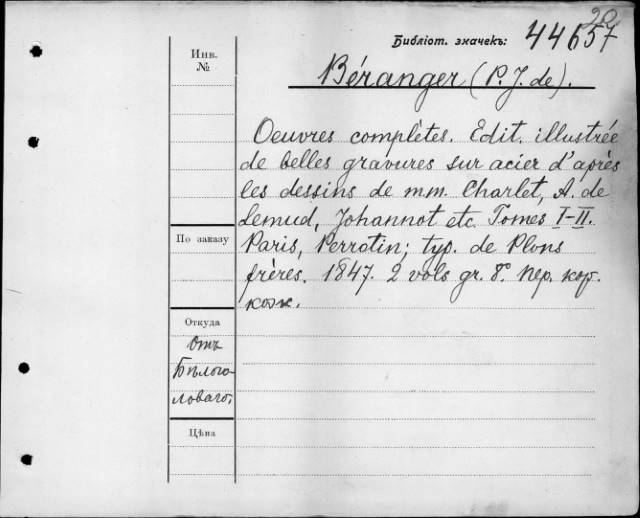 20
Библіот. значекъ: 44657
Инв.
№
Béranger (P. J. de).
Oeuvres complètes. Edit. illustrée
de belles gravures sur acier d'après
les dessins de mm. Charlet, A. de
Lemud, Johannot etc. Tomes I-II.
По заказу
Paris, Perrotin; typ. de Plons
frères. 1847. 2 vols gr. 8°. пер. кор.
кож.
Откуда
Отъ
Бѣлого-
ловаго.
Цѣна